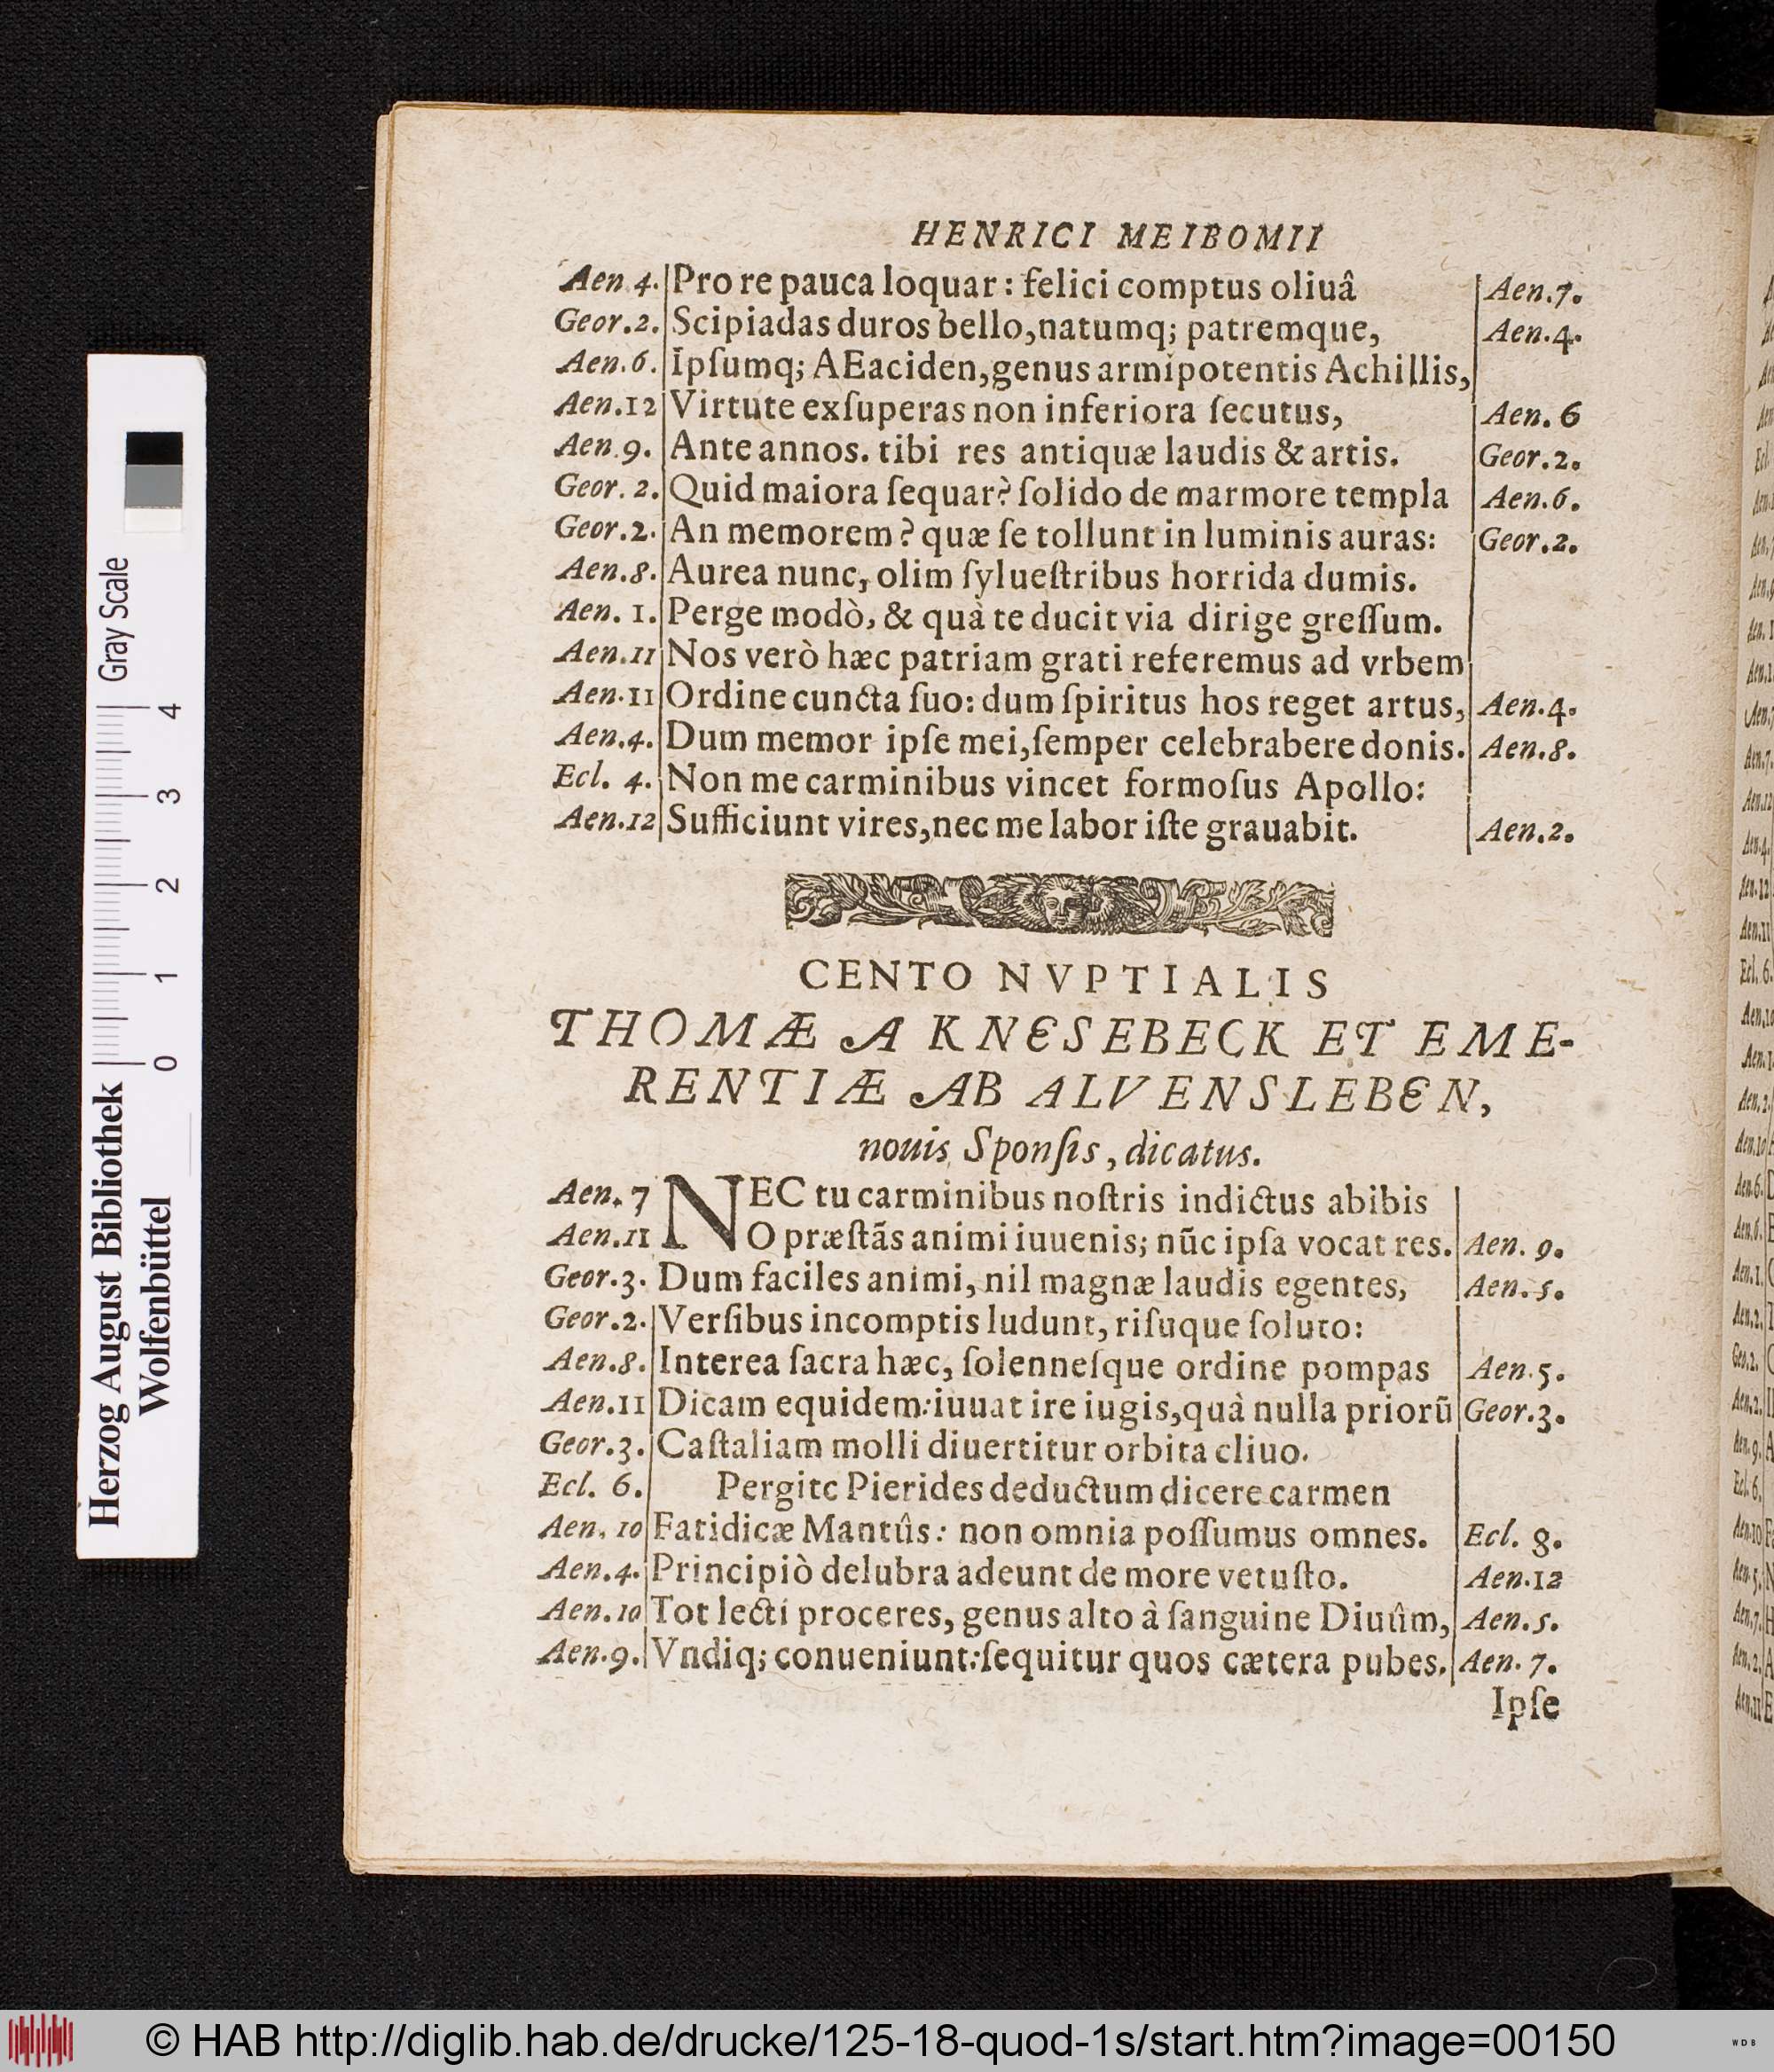 HENRICI MEIBOMII
Aen 4. Pro re pauca loquar: felici comptus oliuâ Aen.7.
Geor.2. Scipiadas duros bello, natumq; patremque, Aen.4.
Aen.6. Ipſumq; AEaciden, genus armipotentis Achillis,
Aen.12 Virtute exſuperas non inferiora ſecutus, Aen. 6
Aen.9. Ante annos. tibi res antiquæ laudis & artis. Geor.2.
Geor. 2. Quid maiora ſequar? ſolido de marmore templa Aen.6.
Geor.2. An memorem? quæ ſe tollunt in luminis auras: Geor.2.
Aen.8. Aurea nunc, olim ſylueſtribus horrida dumis.
Aen. 1. Perge modò, & quà te ducit via dirige greſſum.
Aen.11 Nos verò hæc patriam grati referemus ad vrbem
Aen.11 Ordine cuncta ſuo: dum ſpiritus hos reget artus, Aen.4.
Aen.4. Dum memor ipſe mei, ſemper celebrabere donis. Aen.8.
Ecl. 4. Non me carminibus vincet formoſus Apollo:
Aen.12 Sufficiunt vires, nec me labor iſte grauabit. Aen.2.
CENTO NVPTIALIS
THOMÆ A KNESEBECK ET EME-
RENTIÆ AB ALVENSLEBEN,
nouis Sponſis, dicatus.
Aen. 7 NEC tu carminibus noſtris indictus abibis
Aen.11 O præſtãs animi iuuenis; nũc ipſa vocat res. Aen. 9.
Geor.3. Dum faciles animi, nil magnæ laudis egentes, Aen.5.
Geor.2. Verſibus incomptis ludunt, riſuque ſoluto:
Aen.8. Interea ſacra hæc, ſolenneſque ordine pompas Aen.5.
Aen.11 Dicam equidem: iuuat ire iugis, quà nulla priorũ Geor.3.
Geor.3. Caſtaliam molli diuertitur orbita cliuo.
Ecl. 6. Pergite Pierides deductum dicere carmen
Aen. 10 Fatidicæ Mantûs: non omnia poſſumus omnes. Ecl. 8.
Aen.4. Principiò delubra adeunt de more vetuſto. Aen.12
Aen.10 Tot lecti proceres, genus alto à ſanguine Diuûm, Aen.5.
Aen.9. Vndiq; conueniunt: ſequitur quos cætera pubes. Aen. 7.
Ipſe
Herzog August Bibliothek
Wolfenbüttel
Gray Scale
0 1 2 3 4
© HAB http://diglib.hab.de/drucke/125-18-quod-1s/start.htm?image=00150
WDB